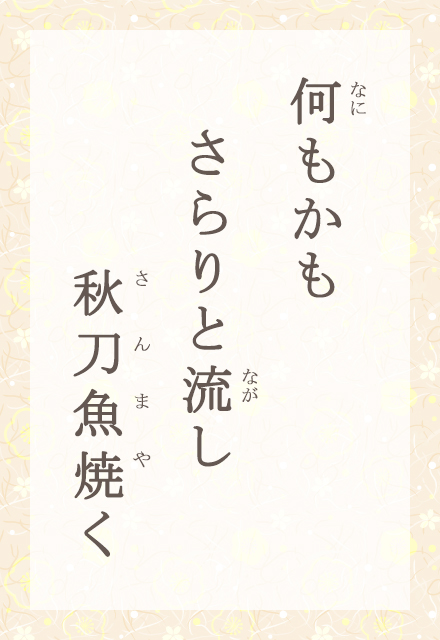 何もかも
なに
さらりと流し
なが
秋刀魚焼く
さんまや